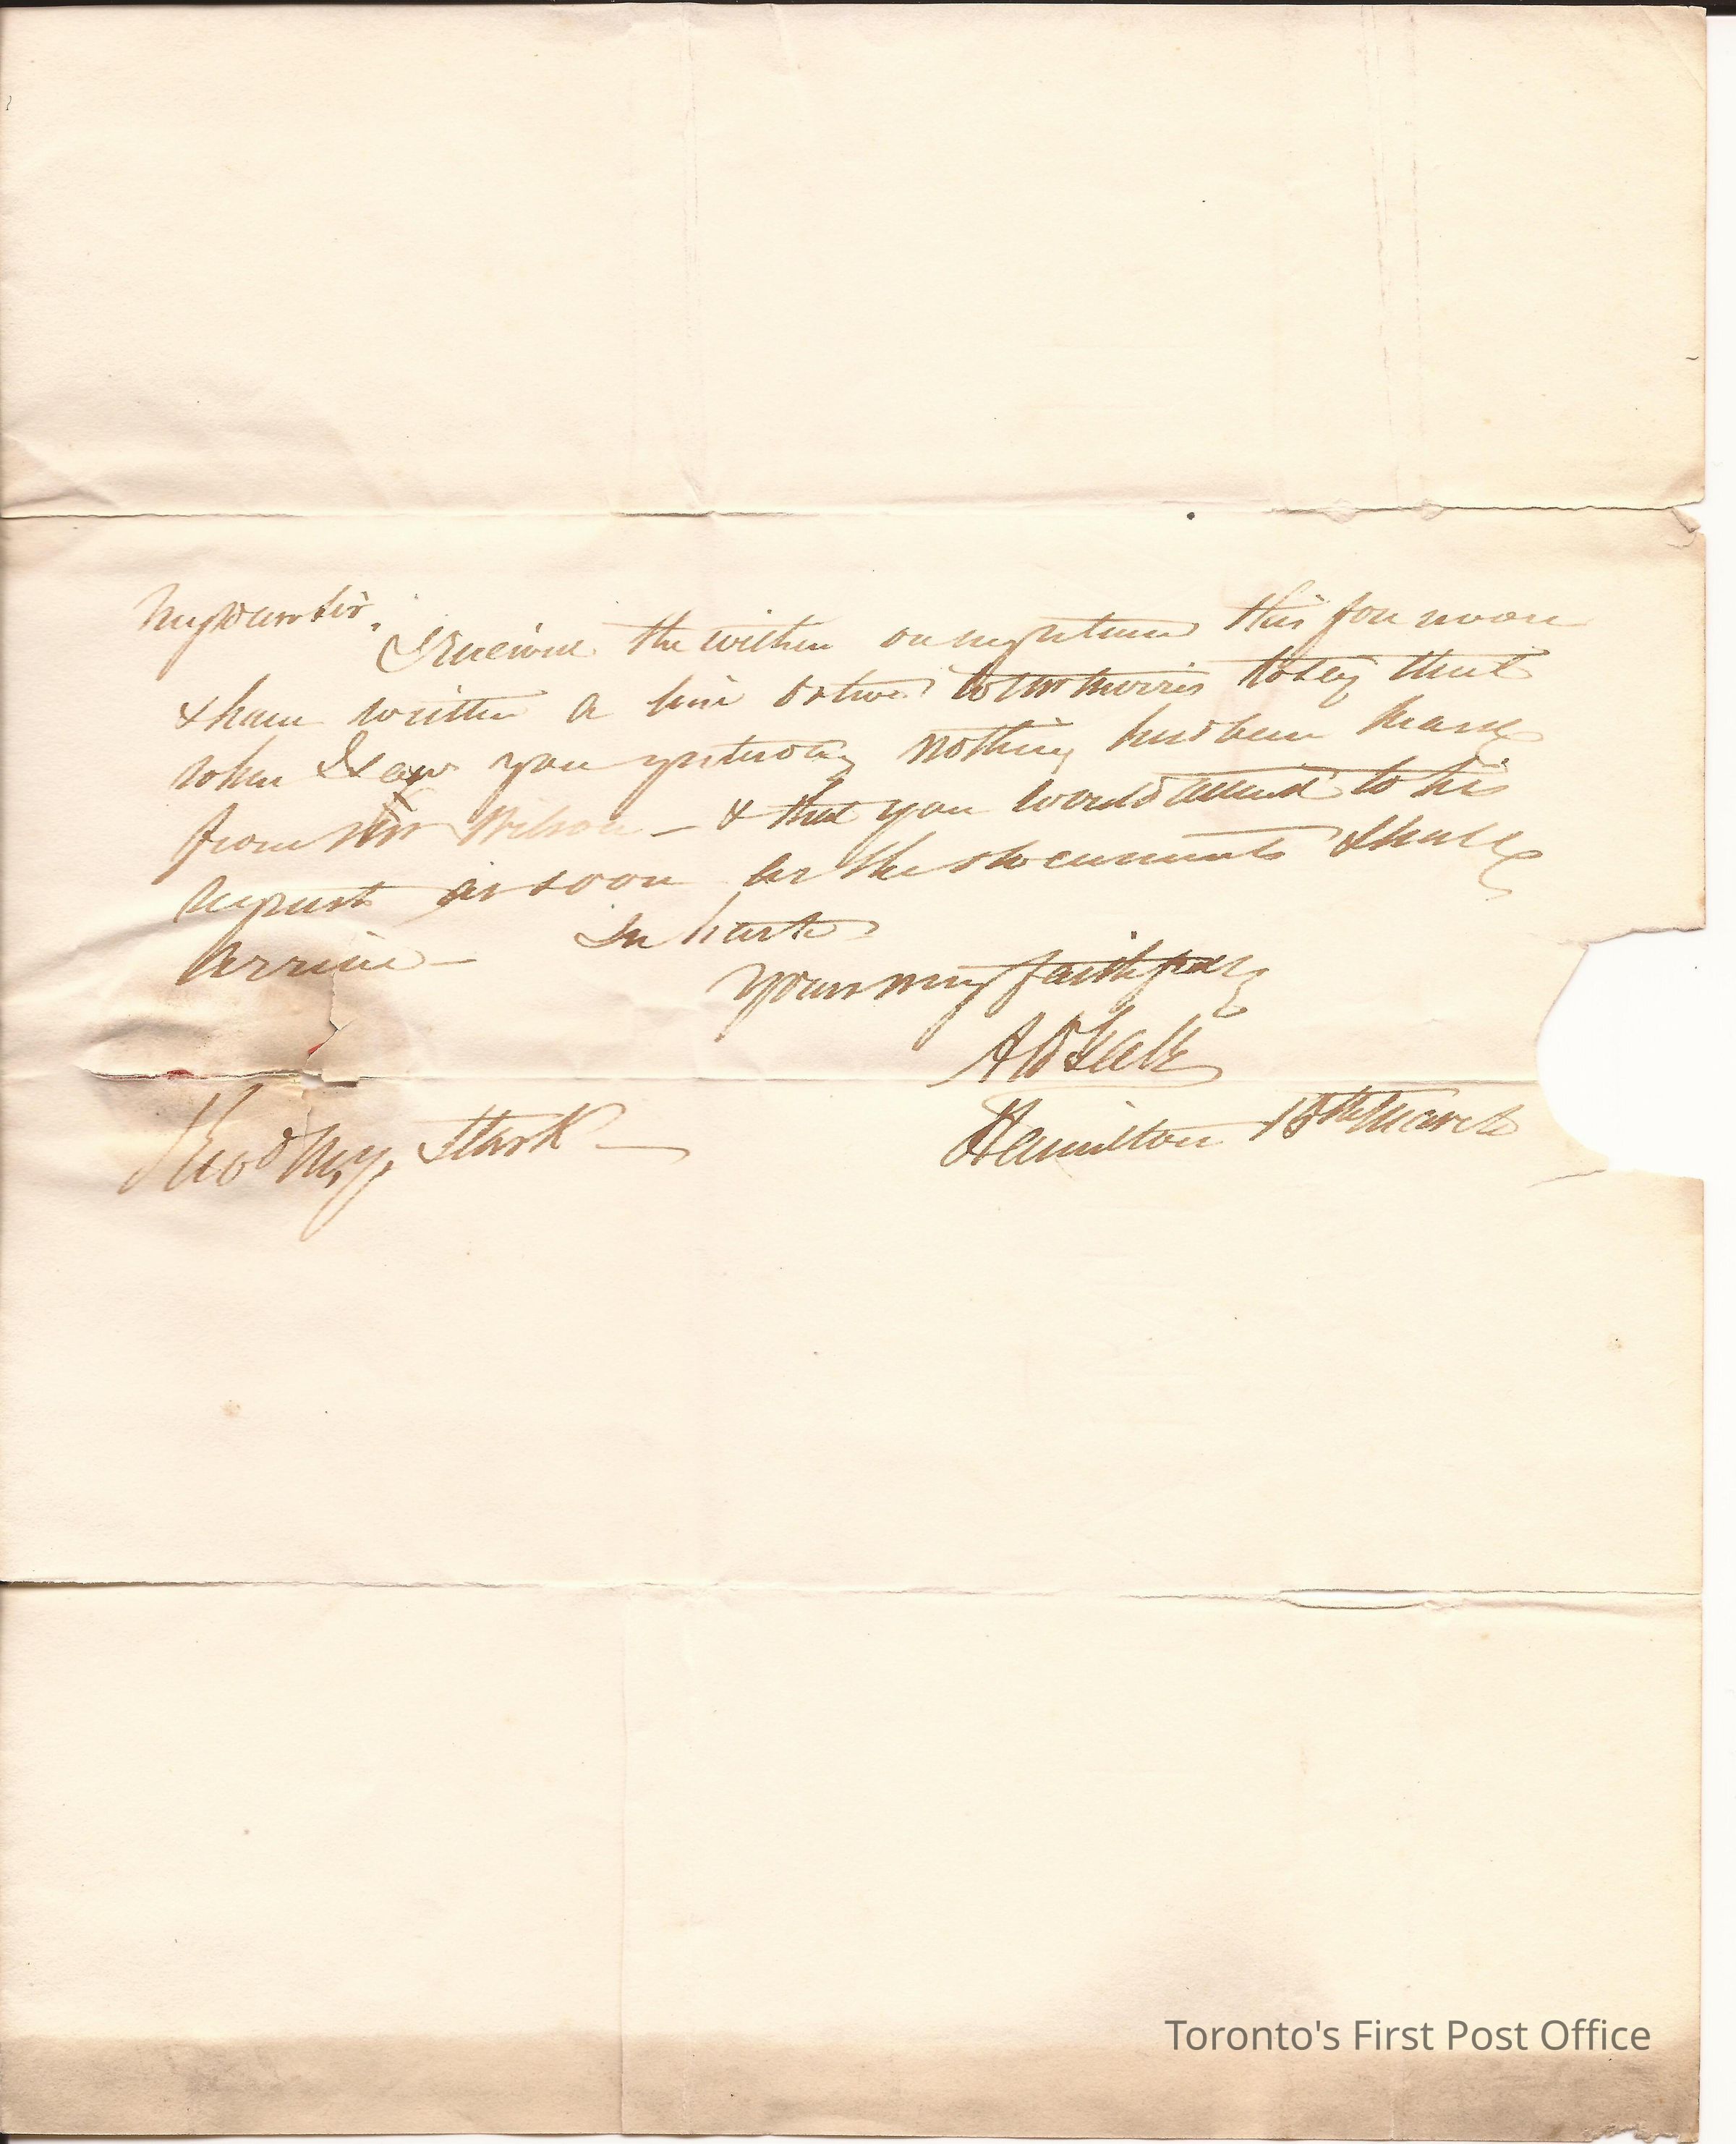 My dear Sir,
I received the within on my return this forenoon
& have written a line or two to Mr Morris to say that
when I saw you yesterday nothing had been heard
from Mr Wilson – & that you would attend to his
request as soon as the documents shall
arrive – In haste
Yours very faithfully
Hamilton 18th March
Revd M. Y. Stark –
Toronto's First Post Office